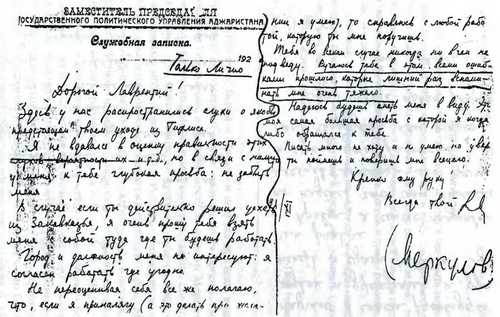 ЗАМЕСТИТЕЛЬ ПРЕДСЕДА ЛЯ
ГОСУДАРСТВЕННОГО ПОЛИТИЧЕСКОГО УПРАВЛЕНИЯ АДЖАРИСТАНА
Служебная записка.
192
Только Лично
Дорогой Лаврентий!
Здесь у нас распространились слухи о якобы
предстоящем твоем уходе из Тифлиса.
Я не вдаваясь в оценку правильности этих
слухов, вероятности их и т.д., но в связи с ними
у меня к тебе глубокая просьба: не забыть
меня
В случае если ты действительно решил уехать
из Закавказья, я очень прошу тебя взять
меня с собой туда где ты будешь работать.
Город и должность меня не интересуют: я
согласен работать где угодно.
Не переоценивая себя все же полагаю,
что, если я приналягу (а это делать при жела-
нии я умею), то справлюсь с любой рабо
той, которую ты мне поручишь.
Тебя во всяком случае никогда ни в чем не
подведу. Ручаюсь тебе в этом всеми ошиб-
ками прошлого, которые лишний раз вспоми-
нать мне очень тяжело.
Надеюсь будешь иметь меня в виду. Это
моя самая большая просьба с которой я когда
либо обращался к тебе.
Писать много не хочу и не умею, но увер
ты поймешь и поверишь мне всецело.
Крепко жму руку!
Всегда твой
(Меркулов)